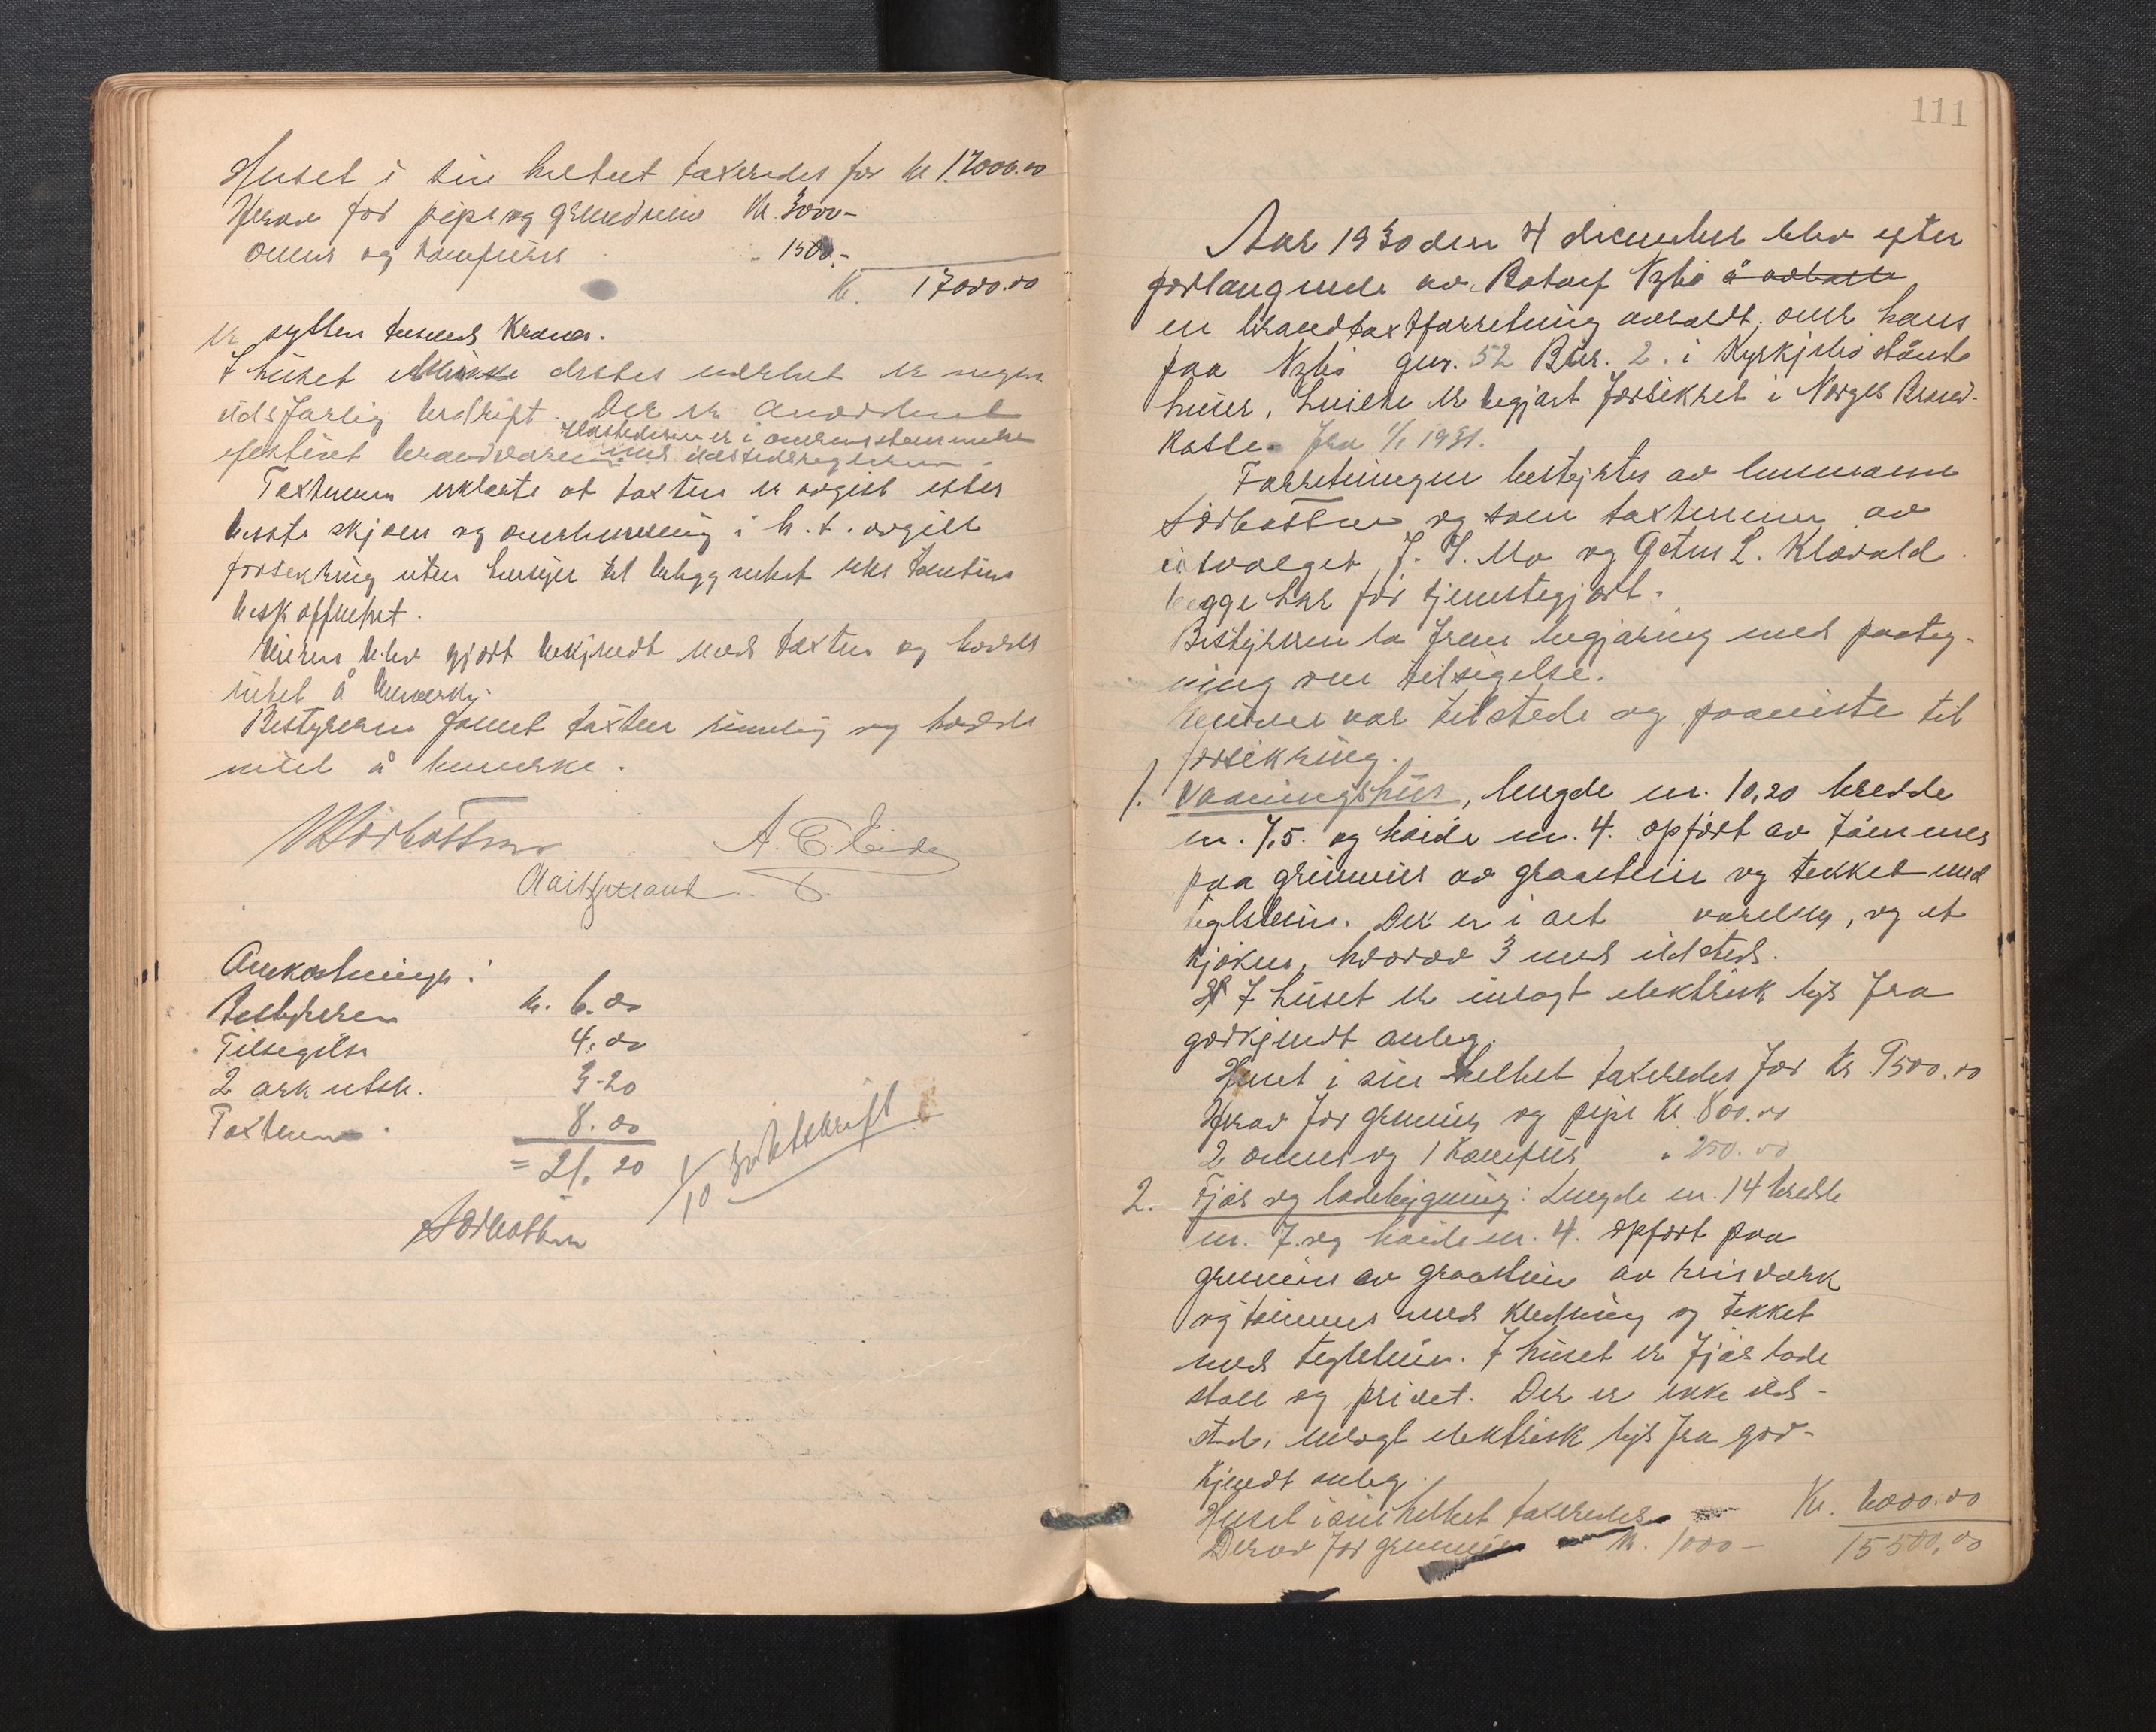 Huset i sin helhet taxeredes for kr 17000.00
Herav for pipe og grundmur Kr. 3000-
Ovner og komfurer " 1500.-
Kr. 17000.00
er sytten tusend Kroner.
I huset dettes nærhet er ingen
ildsfarlig bedrift. Der er anordnet
Ildstederne er i overensstemmelse
efektivt brandværn med ildstedsreglerne.
Taxtmenn erklærte at taxten er avgitt efter
beste skjøn og overbevisning i h. t. avgitt
forsikring uten hensyn til beliggenhet eller tomtens
beskaffenhet.
Eieren blev gjort bekjendt med taxten og hadde
intet å bemerke.
Bestyreren fandt taxten rimelig og hadde
intet å bemerke.
A. E. Eide
Omkostninger:
Bestyreren kr. 6.00
Tilsigelse 4.00
2 ark utsk. 3-20
Taxtmenn 8.00
= 21.20
1/10 utskrift
111
Aar 1930 den 4 december blev efter
forlangende av Rotuf Nybø å avholde
en brandtaxtforretning avholdt over hans
paa Nybø gnr. 52 Bnr. 2. i Kyrkjebø stående
huser, husene er begjært forsikret i Norges Brand-
kasse. Fra 1/1 1931.
Forretningen bestyrtes av lensmann
og som taxtmenn av
utvalget J. I. Mo og L. Klævold.
begge har før tjenestegjort.
Bestyreren la frem begjæring med paateg-
ning om tilsigelse.
Eieren var tilstede og paaviste til
forsikring.
1. Vaaningshus, lengde m. 10,20 bredde
m. 7,5. og høide m. 4. opført av tømmer
paa grunmur av graastein og tekket med
teglstein. Der er i alt værelser, og et
kjøken, hvorav 3 med ildsted.
I huset er inlagt elektrisk lys fra
godkjendt anleg.
Huset i sin helhet taxeredes for Kr 9500.00
Herav for grunmur og pipe Kr. 800.00
2 ovner og 1 komfur " 250.00
2. Fjøs og ladebygning: Lengde m. 14 bredde
m. 7. og høide m. 4. opført paa
grunmur av graastein av reisverk
og tømmer med kledning og tekket
med teglstein. I huset er fjøs lade
stall og privet. Der er ikke ild-
sted, inlagt elektrisk lys fra god-
kjendt anleg.
Huset i sin helhet taxeredes Kr. 6000.00
Derav for grunmur Kr. 1000- 15500,00